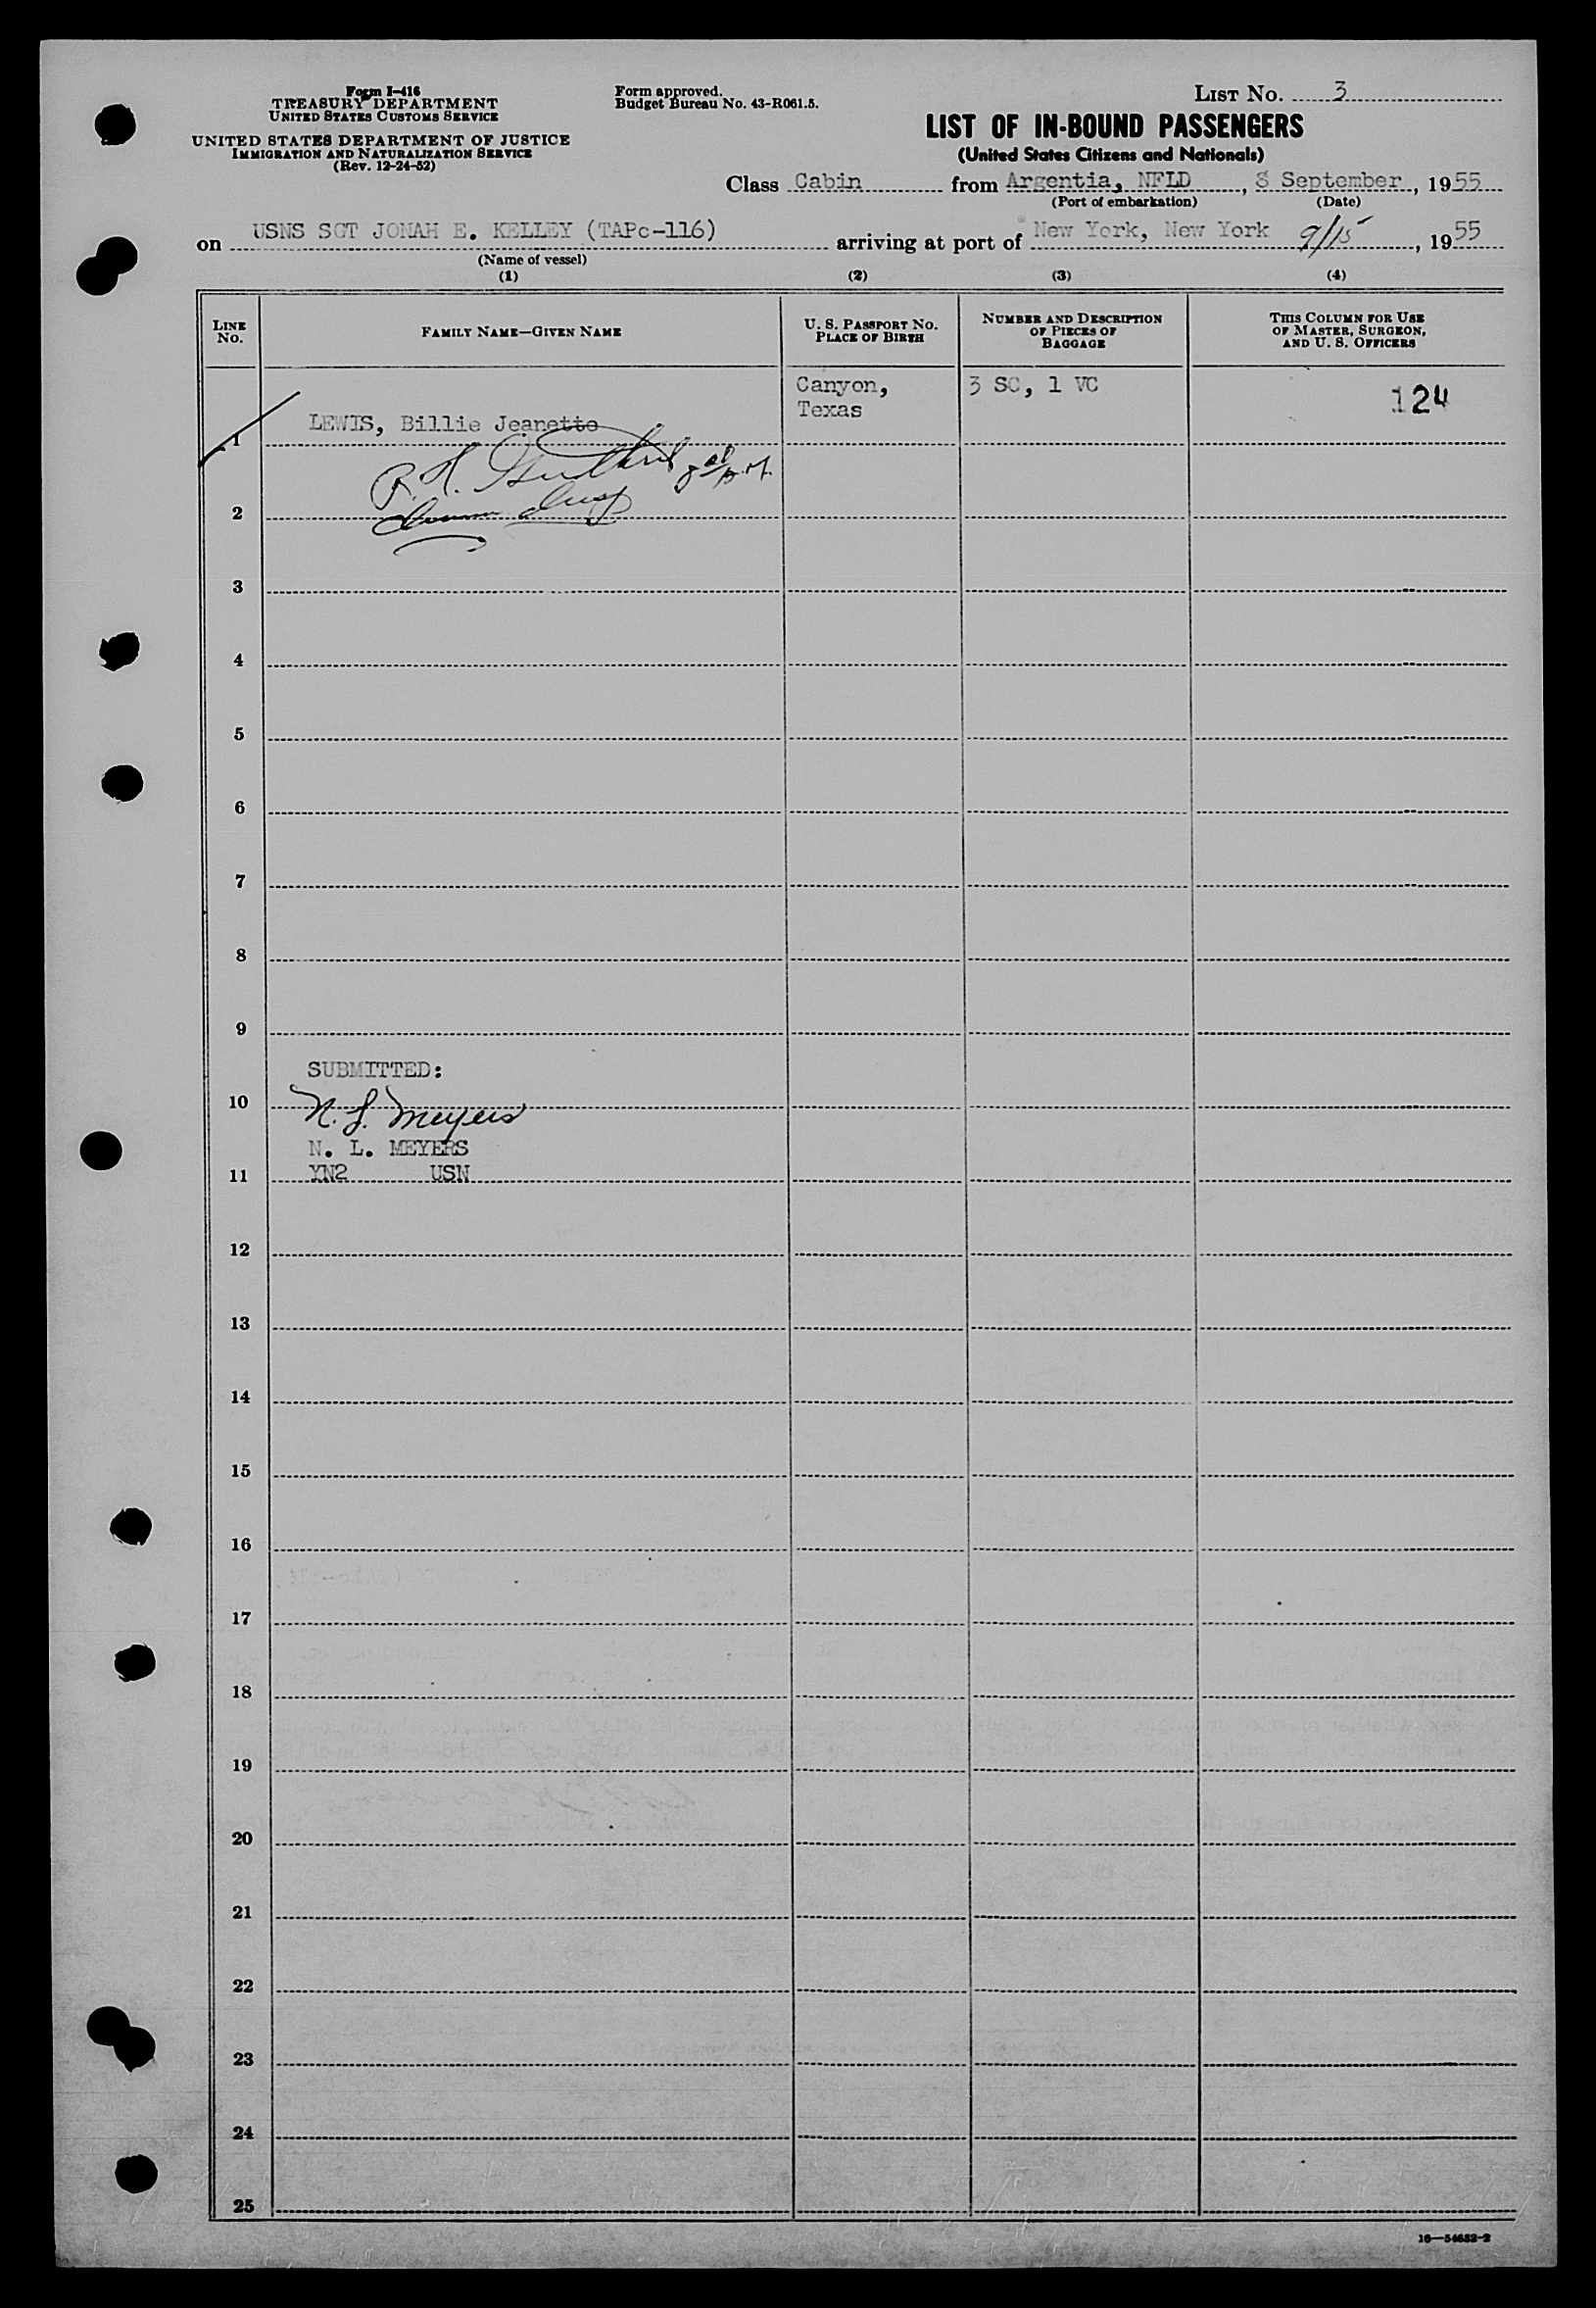 Form I-416
TREASURY DEPARTMENT
UNITED STATES CUSTOMS SERVICE
UNITED STATES DEPARTMENT OF JUSTICE
IMMIGRATION AND NATURALIZATION SERVICE
(Rev. 12-24-52)
Form approved.
Budget Bureau No. 43-R061.5.
LIST No. 3
LIST OF IN-BOUND PASSENGERS
(United States Citizens and Nationals)
Class Cabin from Argentia, NFLD, 8 September, 1955
(Port of embarkation) (Date)
on USNS SGT JONAH E. KELLEY (TAPc-116) arriving at port of New York, New York 9/15, 1955
(Name of vessel)
(1) (2) (3) (4)
LINE No.
FAMILY NAME—GIVEN NAME
U. S. PASSPORT NO.
PLACE OF BIRTH
NUMBER AND DESCRIPTION
OF PIECES OF
BAGGAGE
THIS COLUMN FOR USE
OF MASTER, SURGEON,
AND U. S. OFFICERS
1 LEWIS, Billie Jeanette
Canyon,
Texas
3 SC, 1 VC
124
2
3
4
5
6
7
8
9
SUBMITTED:
10 N. L. Meyers
N. L. MEYERS
11 YN2 USN
12
13
14
15
16
17
18
19
20
21
22
23
24
25
16—54652-2